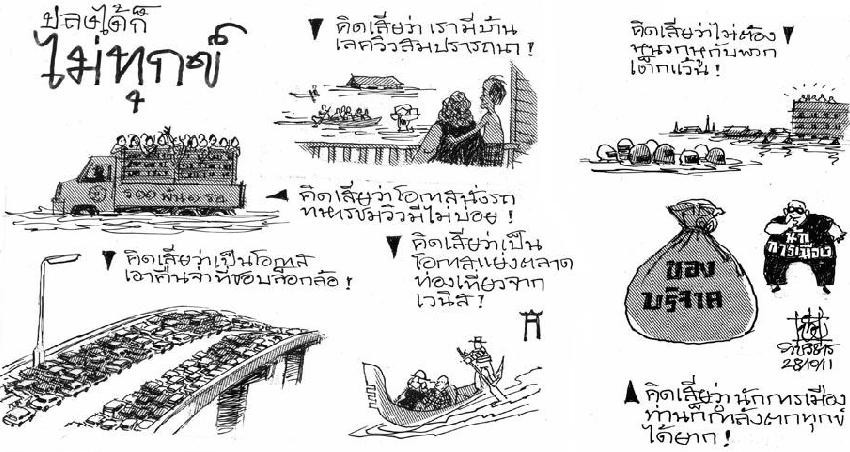 ปลงได้ก็
ไม่ทุกข์
คิดเสียว่า เรามีบ้าน
เลควิวสมปรารถนา !
คิดเสียว่าโอกาสนั่งรถ
ทหารชมวิวมีไม่บ่อย !
คิดเสียว่าเป็นโอกาส
เอาคืนล่าที่ชอบล็อกล้อ !
คิดเสียว่าเป็น
โอกาสแย่งตลาด
ท่องเที่ยวจาก
เวนิส !
คิดเสียว่าไม่ต้อง
หนวกหูกับพวก
เด็กแว้น !
ของ
บริจาค
นัก
การเมือง
คิดเสียว่านักการเมือง
ท่านก็กำลังตกทุกข์
ได้ยาก !